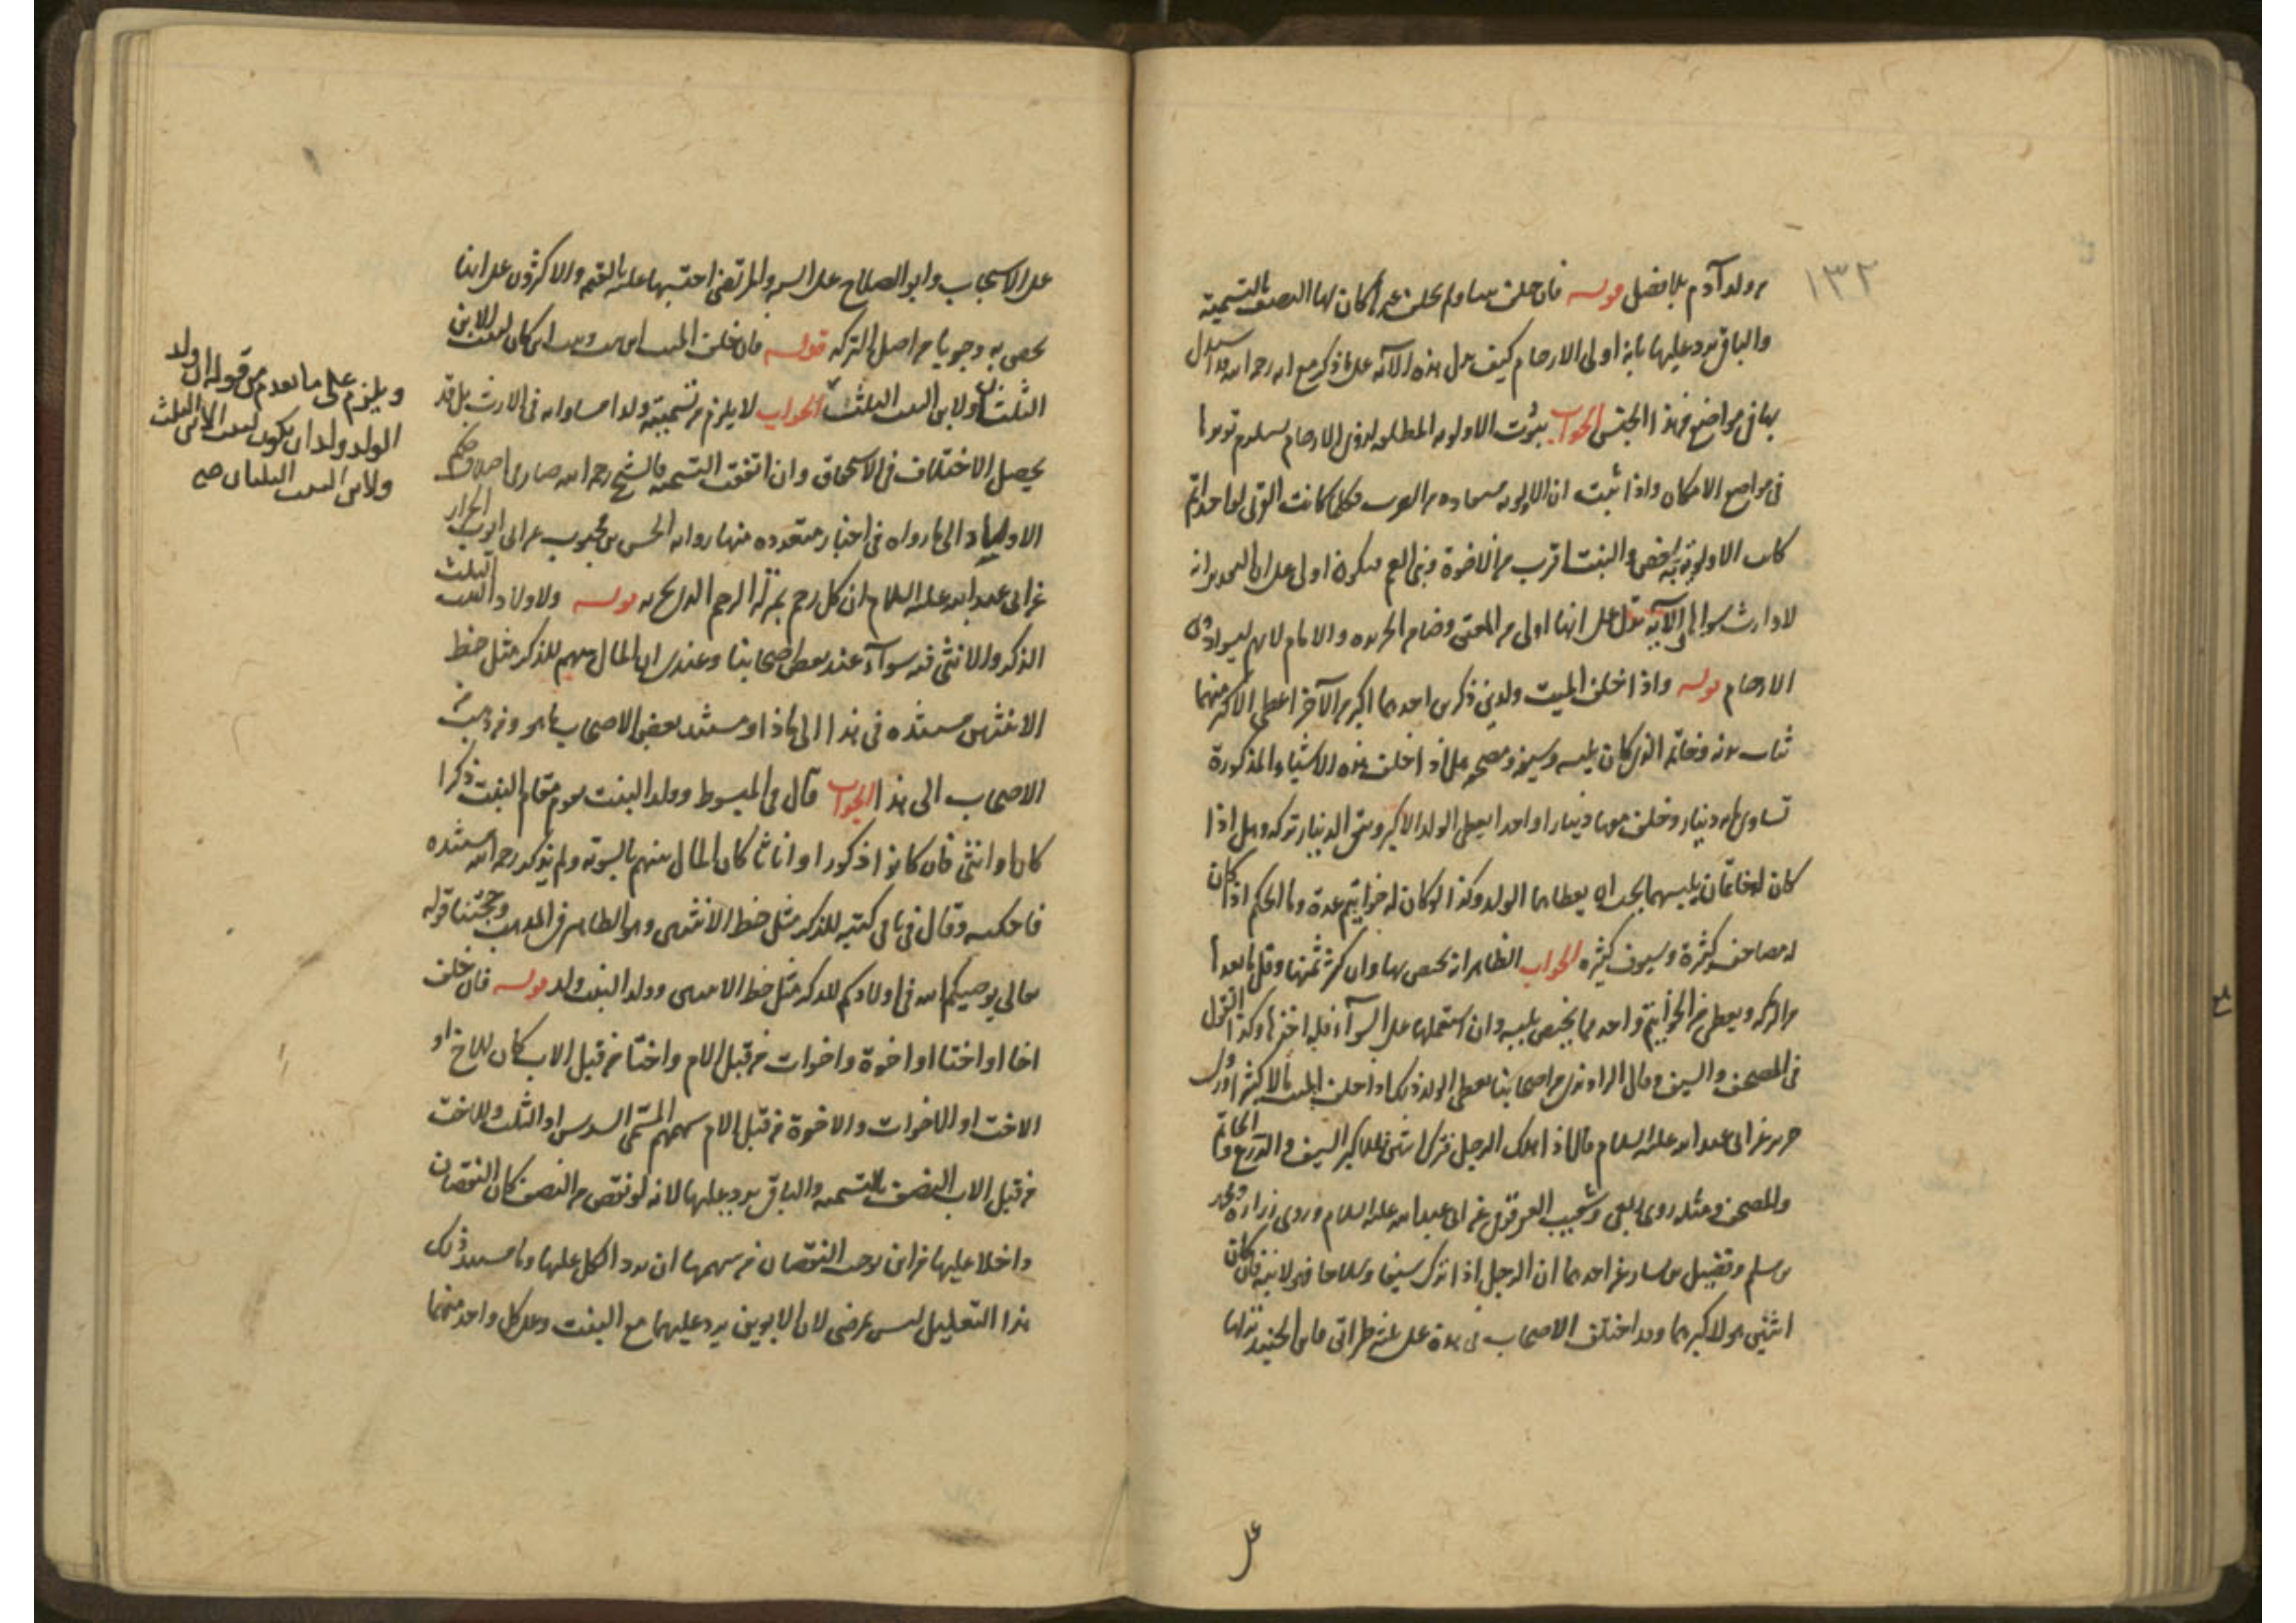 ١٣٢
من ولد آدم بلا فصل قوله فان خلف بنتا ولم يخلف غيرها كان لها النصف بالتسمية
والباقي يرد عليها باية اولي الارحام كيف تدل هذه الآية على ما ذكر مع انه رحمه الله قد استدل
بها في مواضع من هذا الجنس الجواب ثبوت الاولوية المطلقة لذوي الارحام يستلزم توريثها
في مواضع الامكان واذا ثبت ان الاولوية مستفادة من القرب فكلما كانت القربى لواحد اتم
كانت الاولوية به اخص والبنت اقرب من الاخوة وبني العم فيكون اولى على ان التقدير انه
لا وارث سواها والآية تدل على انها اولى من المعتق وضامن الجريرة والامام لانهم ليسوا ذوي
الارحام قوله واذا خلف الميت ولدين ذكرين احدهما اكبر من الآخر اعطي الاكبر منهما
ثياب بدنه وخاتمه الذي كان يلبسه وسيفه ومصحفه هل اذا خلف هذه الاشياء المذكورة
تساوي مائة دينار وخلف معها دينارا واحدا يعطى الولد الاكبر ويبقى الدينار تركه وهل اذا
كان له خاتمان يلبسهما يجب ان يعطاهما الولد وكذا لو كان له خواتيم عدة وما الحكم اذا كان
له مصاحف كثيرة وسيوف كثيره الجواب الظاهر انه يخص بها وان كثر ثمنها وقل ما بعدها
من التركه ويعطى من الخواتيم واحد مما يختص بلبسه وان استعملها على السوآء فله احدها وكذا القول
في المصحف والسيف وقال الراوندي من اصحابنا يعطى الولد ذلك اذا خلف الميت مالا كثيرا وروى
حريز عن ابي عبد الله عليه السلام قال اذا هلك الرجل فترك ابنين فللاكبر السيف والدرع والخاتم
والمصحف ومثله روى ربعي وشعيب العقرقوفي عن ابي عبد الله عليه السلام وروى زرارة ومحمد
بن مسلم وفضيل بن يسار عن احدهما ان الرجل اذا ترك سيفا وسلاحا فهو لابنه فان كان
اثنين فهو لاكبرهما وقد اختلف الاصحاب في هذه على ثلثة طرائق فابن الجنيد نزلها
على
على الاستحباب وابو الصلاح على السنة والمرتضى احتسبها عليه بالقيمة والاكثرون على انها
يخص به وجوبا من اصل التركه قوله فان خلف الميت ابن بنت وبنت ابن كان لبنت الابن
الثلثان ولابن البنت الثلث الجواب لا يلزم من تسميته ولدا مساواته في الارث بل قد
يحصل الاختلاف في الاستحقاق وان اتفقت التسمية فالشيخ رحمه الله صار في اختلاف حكم
الاولاد الى ما رواه في اخبار متعدده منها رواية الحسن بن محبوب عن ابي ايوب الخزاز
عن ابي عبد الله عليه السلام ان كل رحم بمنزلة الرحم الذي يجر به قوله ولاولاد البنت الثلث
الذكر والانثى فيه سوآء عند بعض اصحابنا وعندي ان المال بينهم للذكر مثل حظ
الانثيين مستنده في هذا الى ماذا ومستند بعض الاصحاب ما هو ومن ذهب من
الاصحاب الى هذا الجواب قال في المبسوط وولد البنت يقوم مقام البنت ذكرا
كان او انثى فان كانوا ذكورا او اناثا كان المال بينهم بالسوية ولم يذكر رحمه الله مستنده
فاحكيه وقال في باقي كتبه للذكر مثل حظ الانثيين وهو الظاهر في المذهب وحجتنا قوله
تعالى يوصيكم الله في اولادكم للذكر مثل حظ الانثيين وولد البنت ولد قوله فان خلف
اخا او اختا او اخوة واخوات من قبل الام واختا من قبل الاب كان للاخ او
الاخت او الاخوات والاخوة من قبل الام سهمهم المسمى السدس او الثلث وللاخت
من قبل الاب النصف بالتسمية والباقي يرد عليها لانه لو نقص من النصف كان النقصان
داخلا عليها فمن اين يوجب النقصان من سهمها ان يرد الكل عليها وما مستند ذلك
هذا التعليل ليس بمرضي لان الابوين يرد عليهما مع البنت وعلى كل واحد منهما
ويلزم على ما تقدم من قوله ان ولد
الولد ولد ان يكون لبنت الابن الثلث
ولابن البنت الثلثان صح